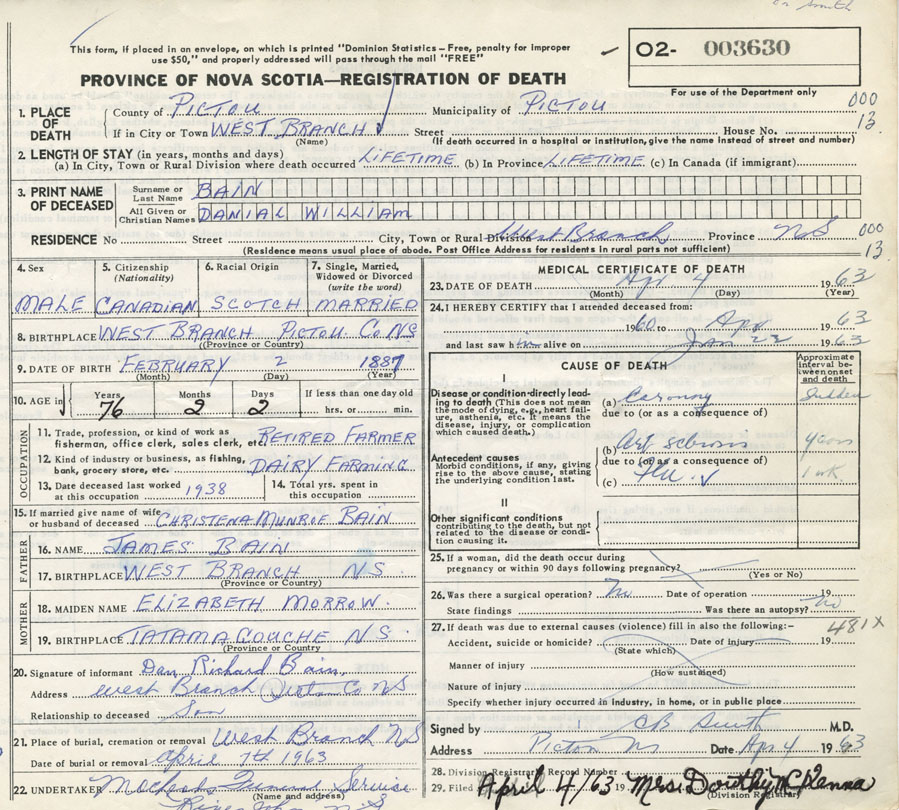 This form, if placed in an envelope, on which is printed "Dominion Statistics – Free, penalty for improper
use $50," and properly addressed will pass through the mail "FREE"
O2- 003630
For use of the Department only
PROVINCE OF NOVA SCOTIA—REGISTRATION OF DEATH
000
13
1. PLACE OF DEATH
County of PICTOU Municipality of PICTOU
If in City or Town WEST BRANCH Street House No.
(Name) (If death occurred in a hospital or institution, give the name instead of street and number)
2. LENGTH OF STAY (in years, months and days)
(a) In City, Town or Rural Division where death occurred LIFETIME (b) In Province LIFETIME (c) In Canada (if immigrant)
3. PRINT NAME OF DECEASED
Surname or Last Name BAIN
All Given or Christian Names DANIAL WILLIAM
RESIDENCE No Street City, Town or Rural Division West Branch Province N S
000
13
(Residence means usual place of abode. Post Office Address for residents in rural parts not sufficient)
4. Sex
MALE
5. Citizenship (Nationality)
CANADIAN
6. Racial Origin
SCOTCH
7. Single, Married, Widowed or Divorced (write the word)
MARRIED
8. BIRTHPLACE WEST BRANCH PICTOU Co NS
(Province or Country)
9. DATE OF BIRTH FEBRUARY 2 1887
(Month) (Day) (Year)
10. AGE in Years 76 Months 2 Days 2 If less than one day old
hrs. or min.
OCCUPATION
11. Trade, profession, or kind of work as
fisherman, office clerk, sales clerk, etc. RETIRED FARMER
12. Kind of industry or business, as fishing,
bank, grocery store, etc. DAIRY FARMING
13. Date deceased last worked
at this occupation 1938
14. Total yrs. spent in
this occupation
15. If married give name of wife
or husband of deceased CHRISTENA MUNROE BAIN
FATHER
16. NAME JAMES BAIN
17. BIRTHPLACE WEST BRANCH N S
(Province or Country)
MOTHER
18. MAIDEN NAME ELIZABETH MORROW.
19. BIRTHPLACE TATAMAGOUCHE N S
(Province or Country)
20. Signature of informant Dan Richard Bain
Address West Branch Pictou Co NS
Relationship to deceased Son
21. Place of burial, cremation or removal West Branch N S
Date of burial or removal April 7th 1963
22. UNDERTAKER Service
(Name and address)
River John N. S
MEDICAL CERTIFICATE OF DEATH
23. DATE OF DEATH Apr 4 1963
(Month) (Day) (Year)
24. I HEREBY CERTIFY that I attended deceased from:
1960 to Apr 1963
and last saw him alive on Jan 22 1963
CAUSE OF DEATH
Approximate interval between onset and death
I
Disease or condition directly leading to death (This does not mean
the mode of dying, e.g., heart failure, asthenia, etc. It means the
disease, injury, or complication
which caused death.)
(a) Coronary Sudden
due to (or as a consequence of)
Antecedent causes
Morbid conditions, if any, giving
rise to the above cause, stating
the underlying condition last.
(b) Art sclerosis years
due to (or as a consequence of)
(c) Flu 1 wk
II
Other significant conditions
contributing to the death, but not
related to the disease or condition causing it
25. If a woman, did the death occur during
pregnancy or within 90 days following pregnancy?
(Yes or No)
26. Was there a surgical operation? No Date of operation 19
State findings Was there an autopsy? No
27. If death was due to external causes (violence) fill in also the following:–
481X
Accident, suicide or homicide? Date of injury 19
(State which)
Manner of injury
(How sustained)
Nature of injury
Specify whether injury occurred in industry, in home, or in public place
Signed by C B Smith M.D.
Address Pictou NS Date Apr 4 1963
28. Division Registrar's Record Number
29. Filed April 4/63 19 Mrs. Dorothy McKenna
(Division Registrar)